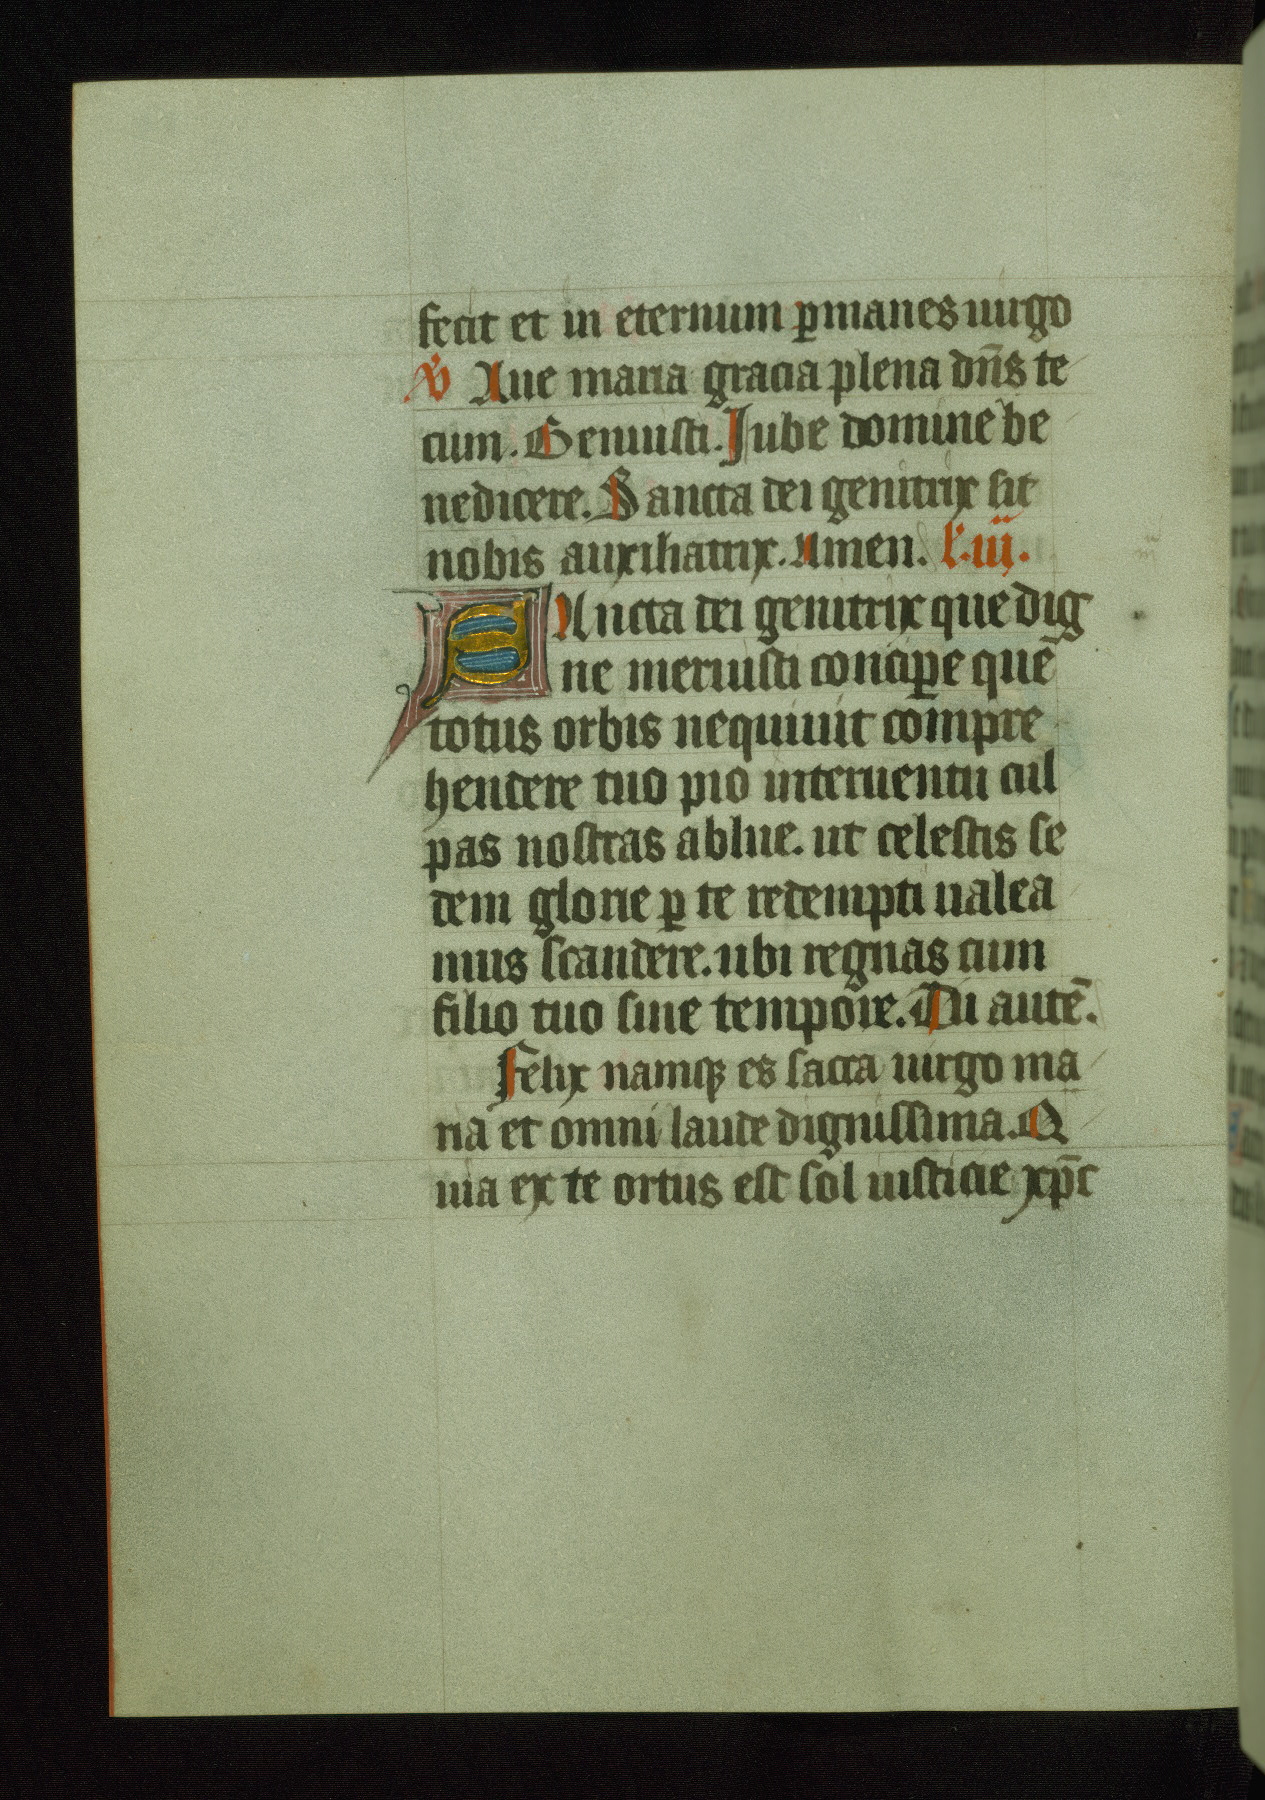 fecit et in eternum p̲manes uirgo
V̇ Aue maria gracia plena dn̄s te
cum. Genuisti. Jube domine be
nedicere. Sancta dei genitrix sit
nobis auxiliatrix. Amen. l'. iii.
SAncta dei genitrix que dig
ne meruisti concip̲e quē
totus orbis nequiuit compre
hendere tuo pio interuentu cul
pas nostras ablue. ut celestis se
dem glorie p̲ te redempti ualea
mus scandere. ubi regnas cum
filio tuo sine tempore. Tu autē.
Felix namqꝫ es sacra uirgo ma
ria et omni laude dignissima. Q
uia ex te ortus est sol iusticie xp̄c